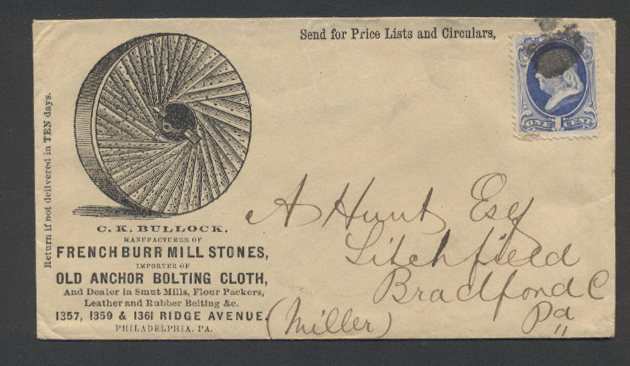 Send for Price Lists and Circulars,
Return if not delivered in TEN days.
C. K. BULLOCK,
MANUFACTURER OF
FRENCH BURR MILL STONES,
IMPORTER OF
OLD ANCHOR BOLTING CLOTH,
And Dealer in Smut Mills, Flour Packers,
Leather and Rubber Belting &c.
1357, 1359 & 1361 RIDGE AVENUE,
PHILADELPHIA, PA.
ONE CENT
A Hunt Esq
Litchfield
Bradford C
Pa
(Miller)